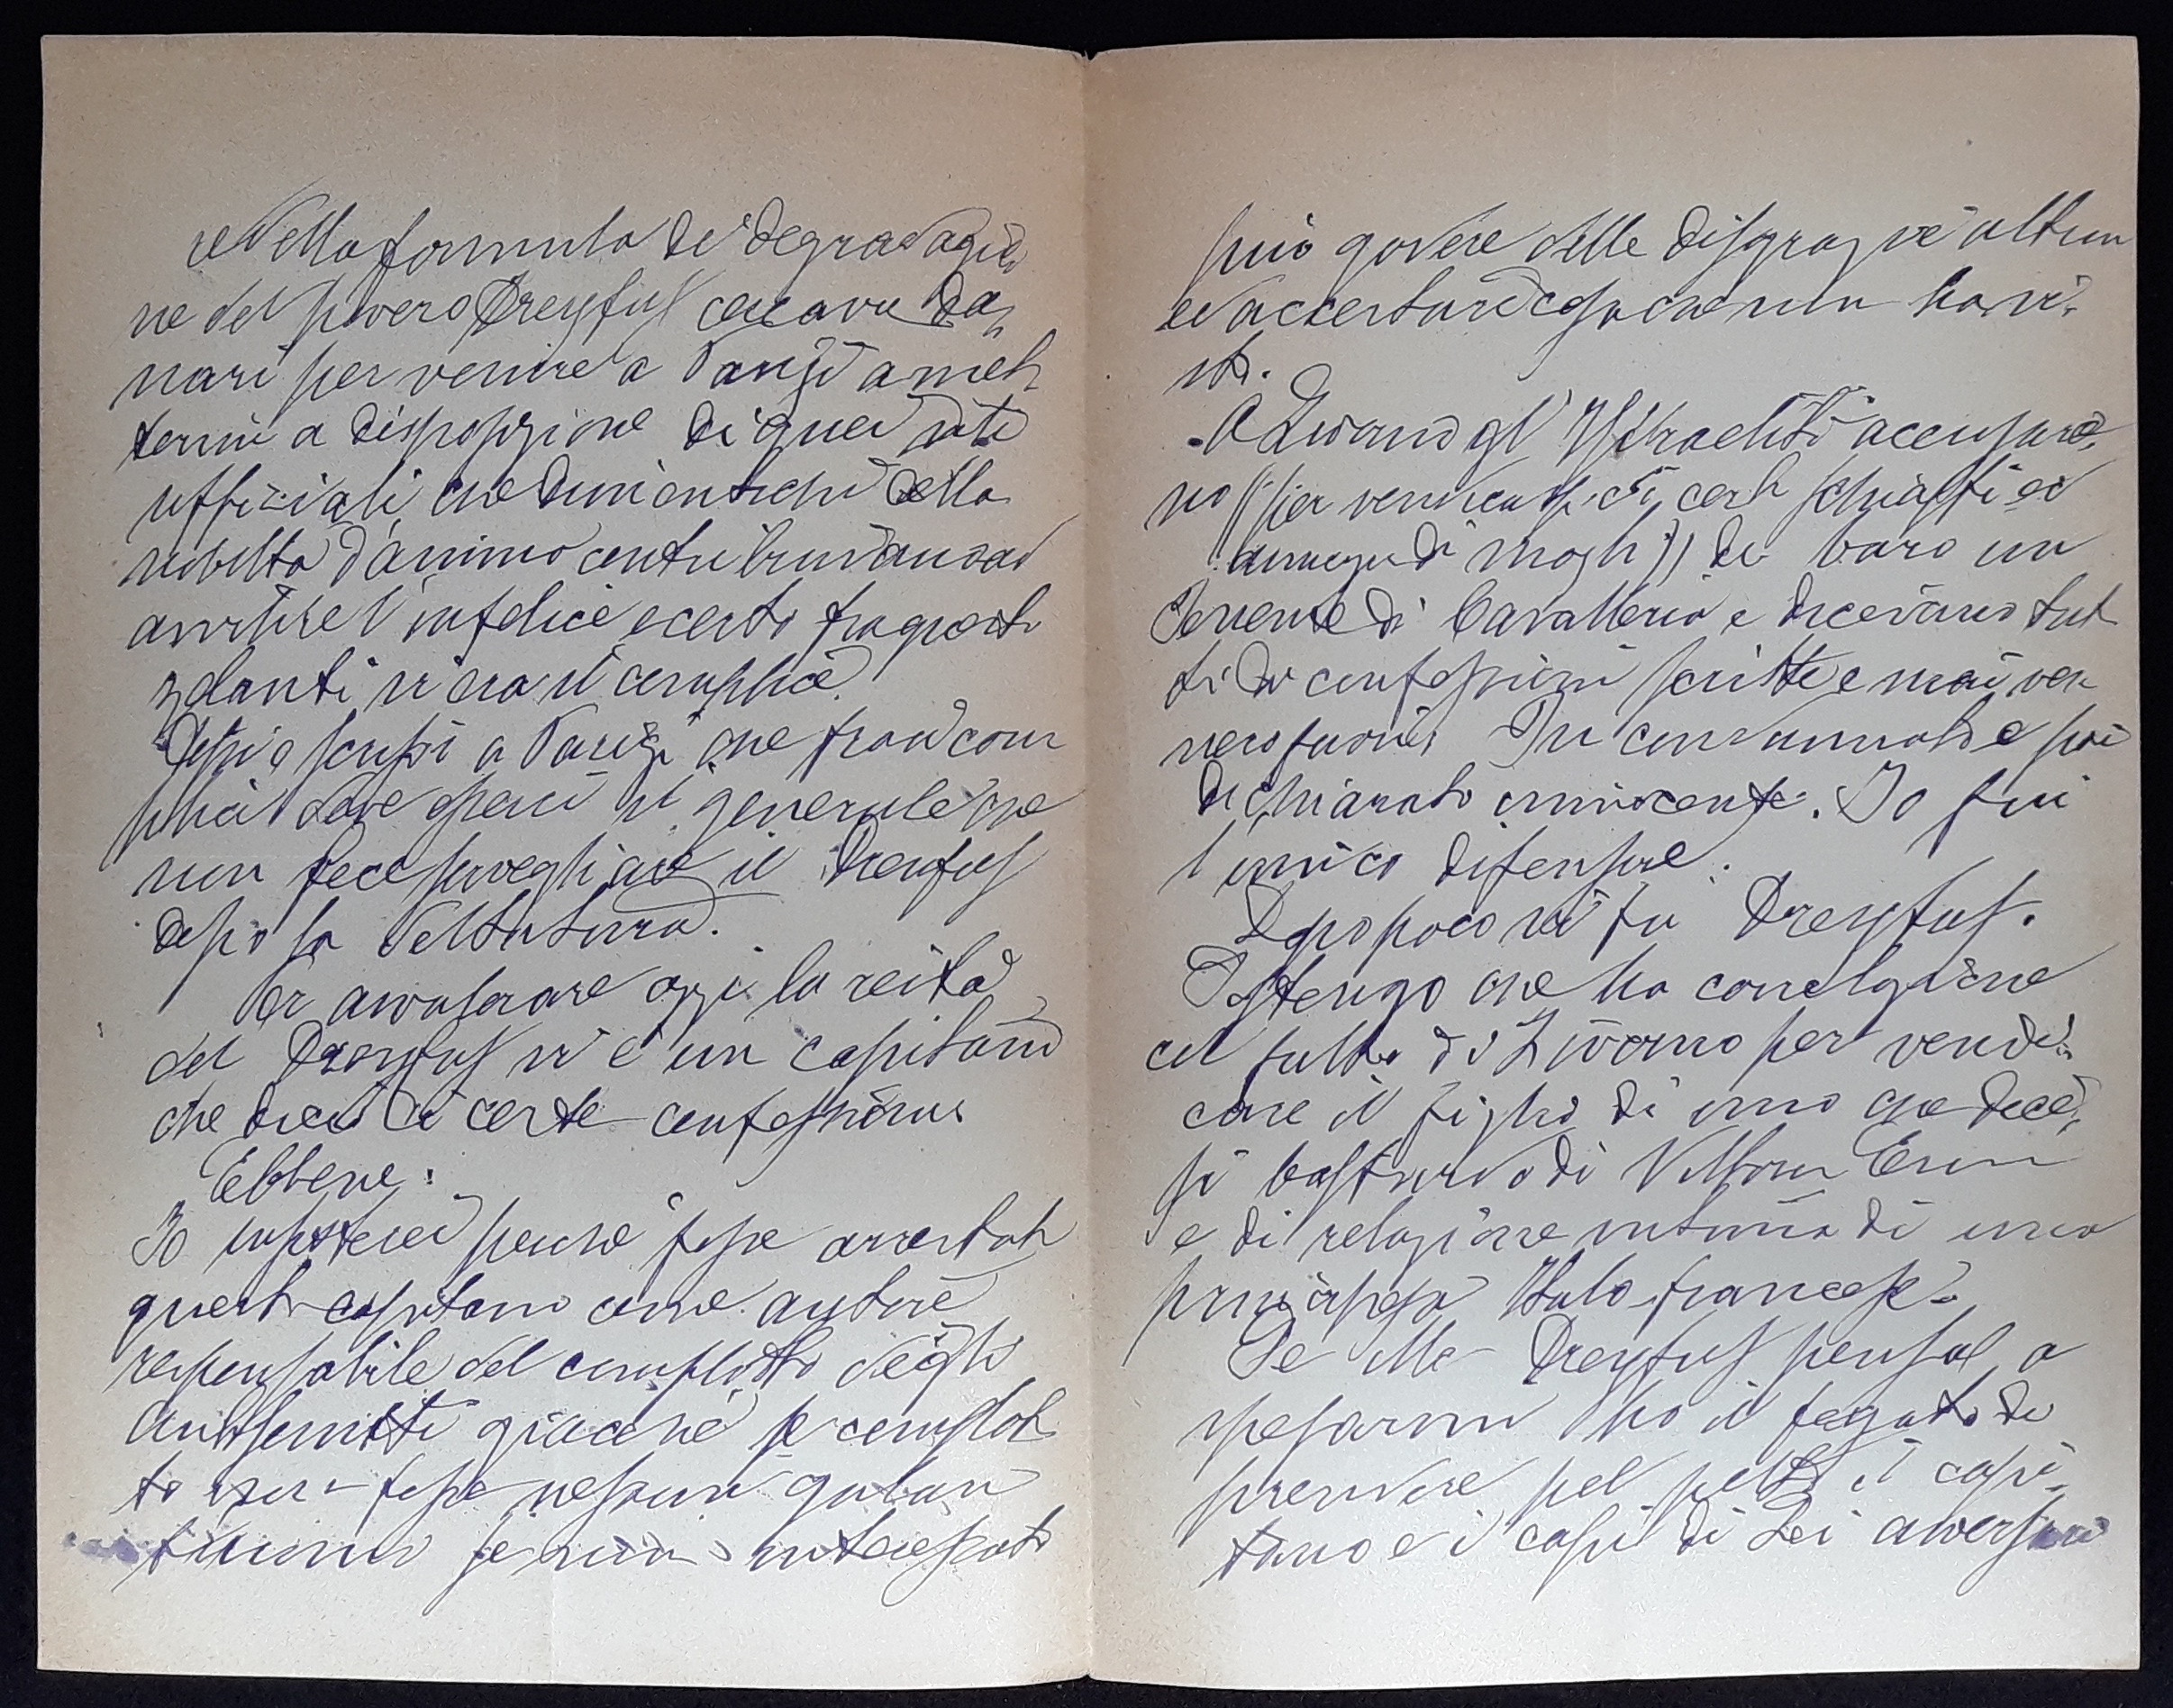 re della formula di degradazio
ne del povero Dreyfus cercavo da,
nari per venire a Parigi a met,
termi a disposizione di quei
uffiziali che dimentichi della
nobiltà d'animo contribuivano ad
avvilire l'infelice e certo fra questi
zelanti vi era il complice.
scrissi a Parigi che fra i com
plici dove esservi il generale che
non fece sorvegliare il Dreyfus
dopo la
Per avvalorare oggi la reità
del Dreyfus vi è un capitano
che dice di certe confessioni
Ebbene:
Io perché fosse arrestato
questo capitano come autore
responsabile del complotto degli
antisemiti giacché se complot
to non fosse nessun galan
tuomo se non interessato
può godere delle disgrazie altrui
ed accertare cosa che non ha vi,
sto.
A Livorno gl' Israeliti accusaro,
no (per di certi schiaffi ed
di mogli) di baro un
Tenente di Cavalleria e dicevano tut
ti di confessioni scritte e mai ven
nero fuori. Fu condannato e poi
dichiarato innocente. Io fui
l'unico difensore.
Dopo poco vi fu Dreyfus.
Sostengo che ha correlazione
col fatto di Livorno per vendi,
care il figlio di uno che dice,
si bastardo di Vittorio Em
e di relazione intima di una
principessa Italo-francese.
Se Me Dreyfus pensa a
spesarmi ho il fegato di
prendere pel petto il capi,
tano e i capi di Lei avversari